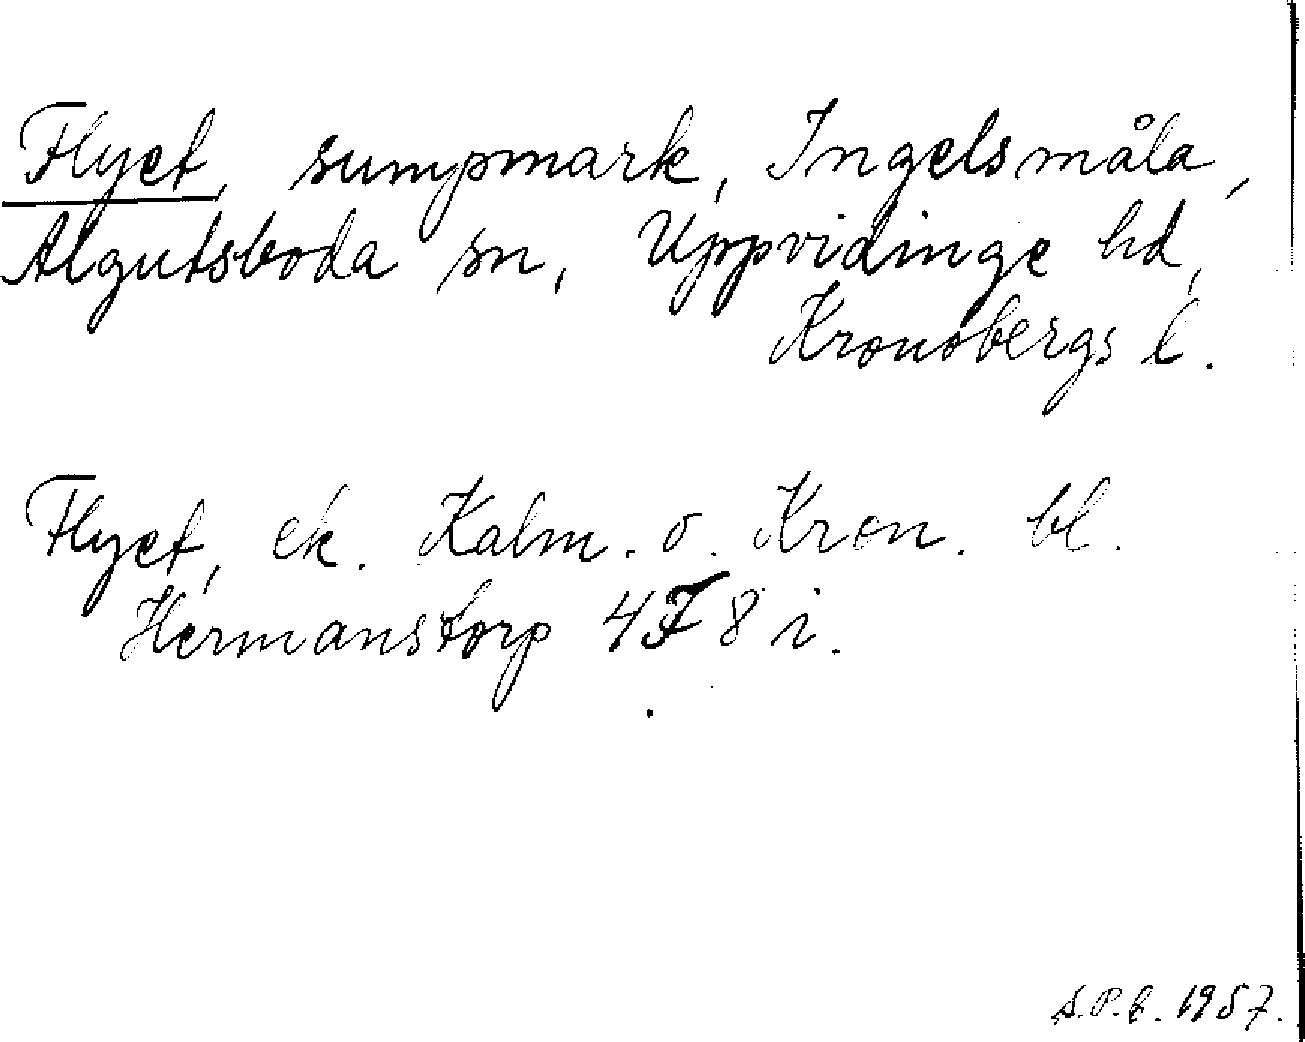 Flyet, sumpmark, Ingelsmåla,
Algutsboda sn, Uppvidinge hd,
Kronobergs l.
Flyet, ek. Kalm. o. Kron. bl.
Hermanstorp 4F 8 i.
1957.